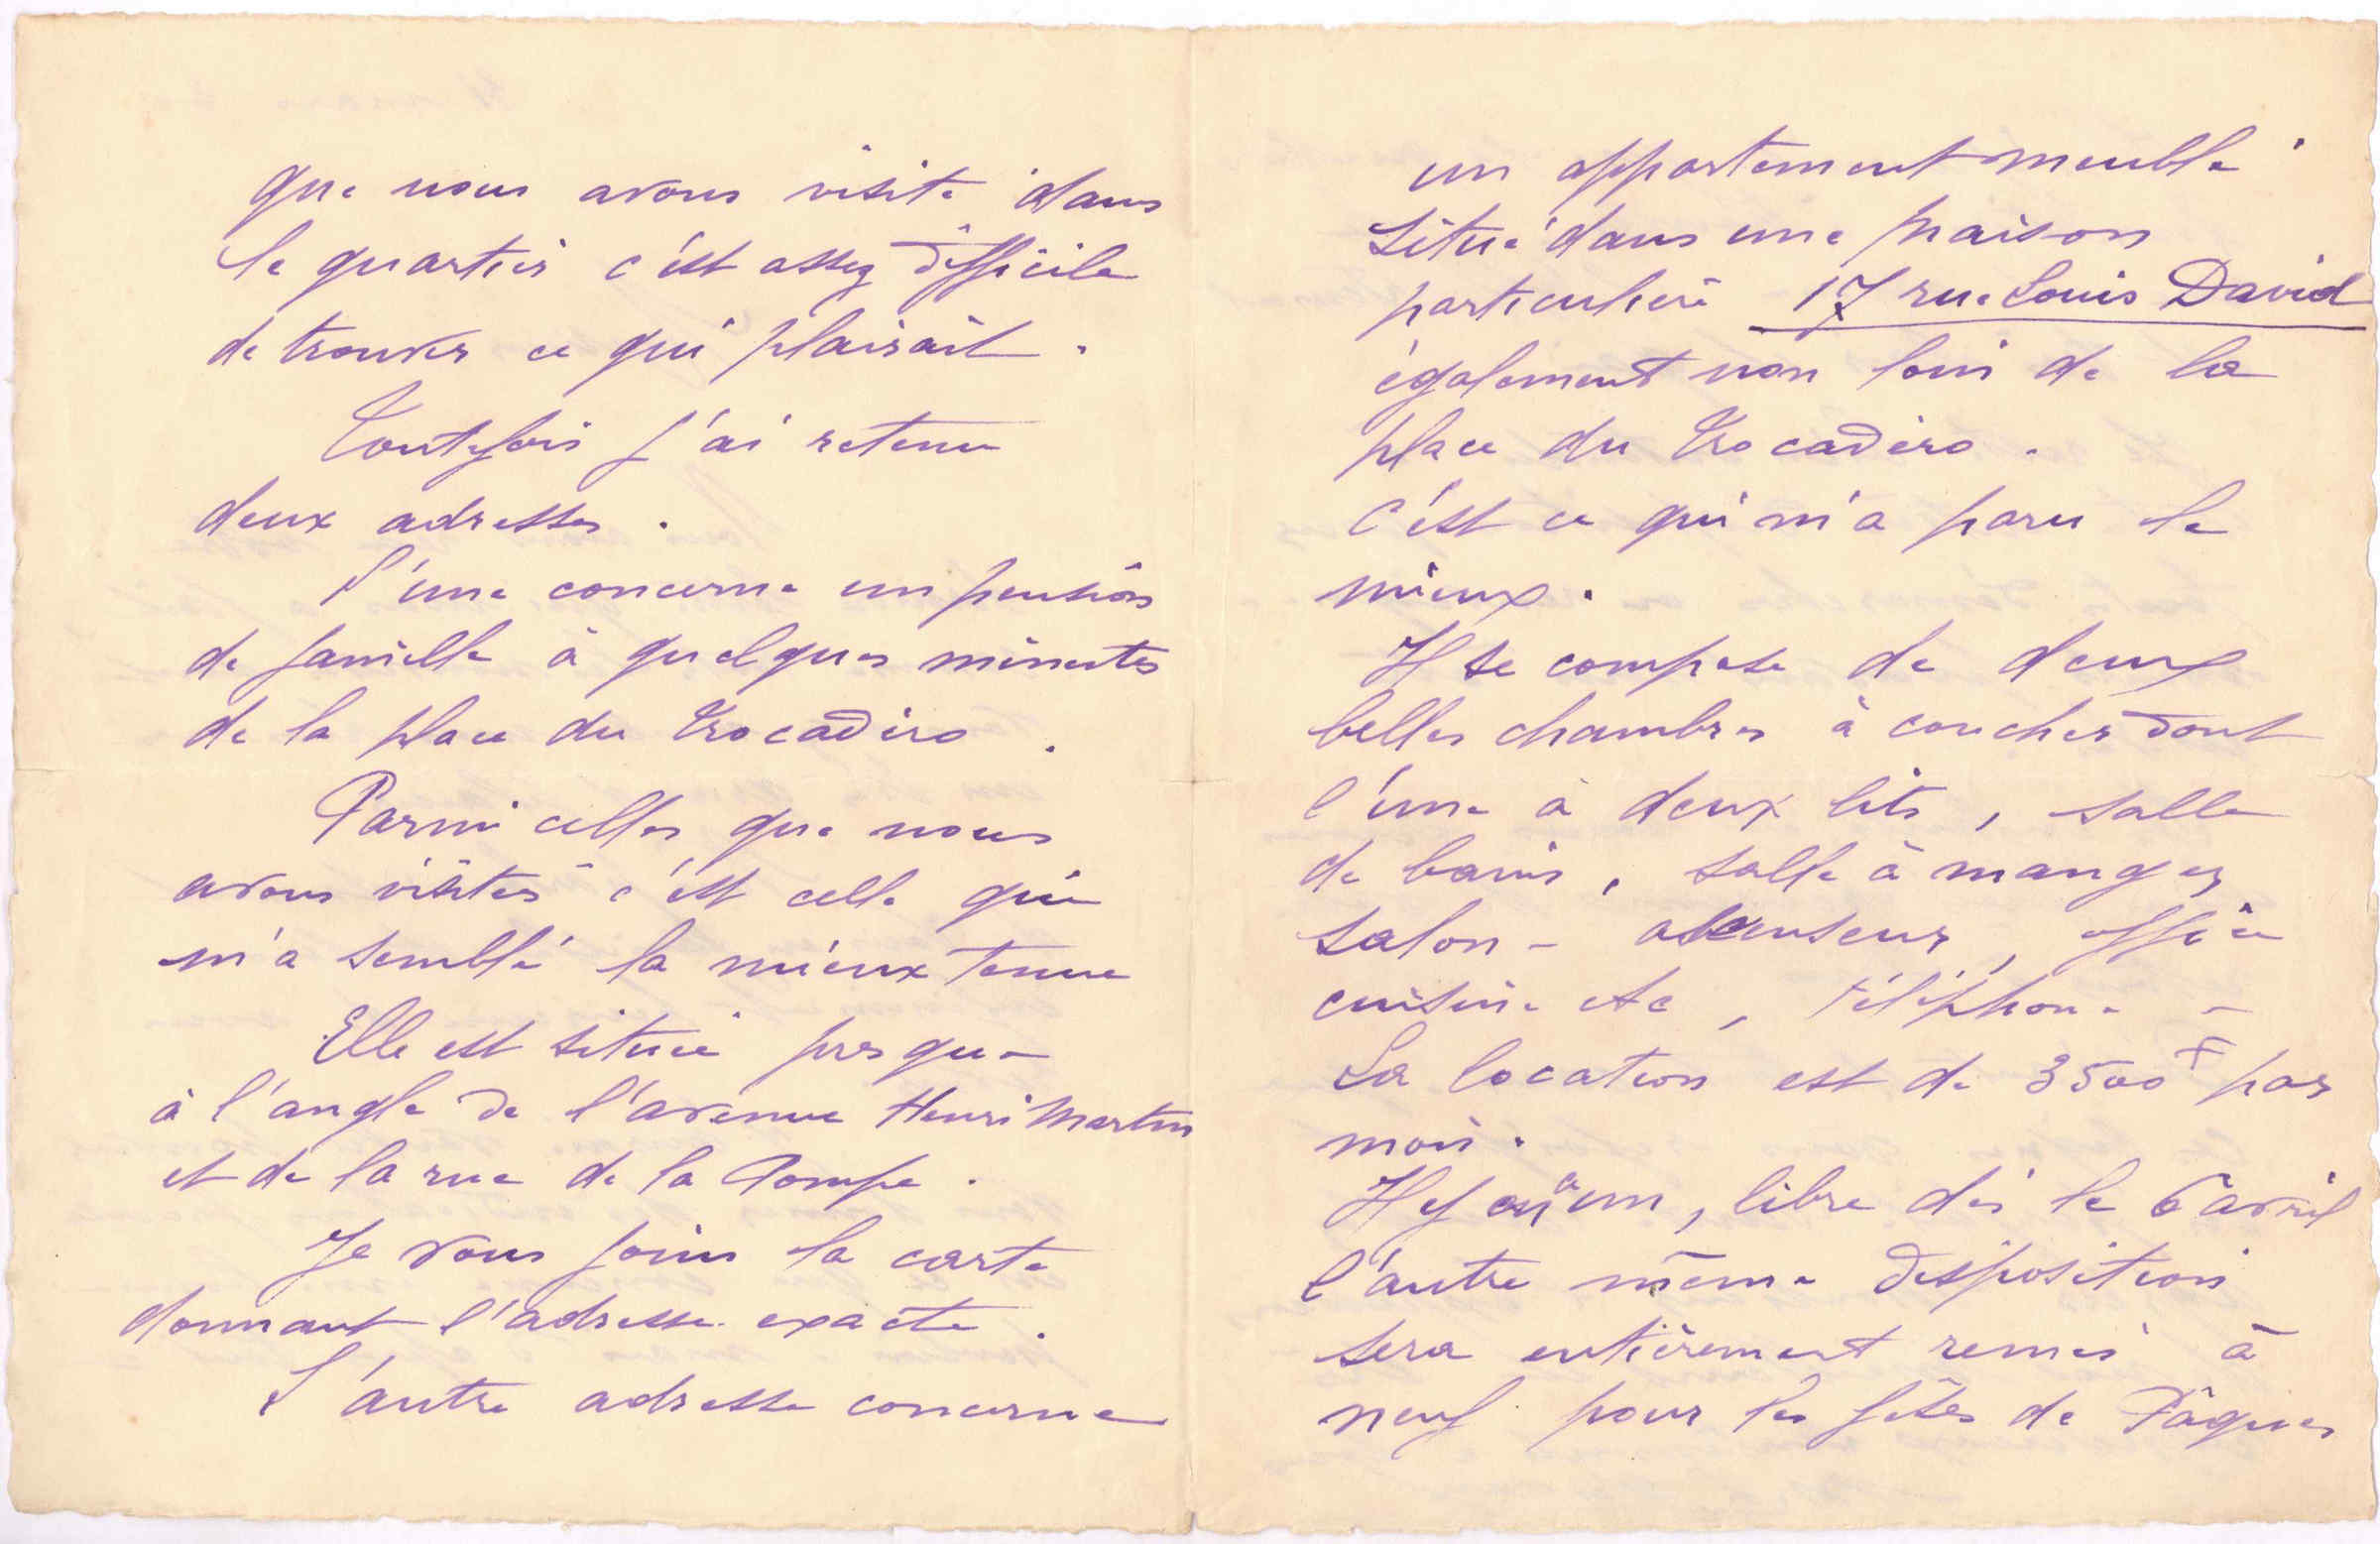 que nous avons visité dans
le quartier c'est assez difficile
de trouver ce qui plairait.
Toutefois j'ai retenu
deux adresses.
L'une concerne un pension
de famille à quelques minutes
de la place du Trocadéro.
Parmi celles que nous
avons visités c'est celle qui
m'a semblé la mieux tenue
Elle est située presque
à l'angle de l'avenue Henri Martin
et de la rue de la Pompe.
Je vous joins la carte
donnant l'adresse exacte.
L'autre adresse concerne
un appartement meublé
situé dans une maison
particulière 17 rue Louis David
également non loin de la
place du Trocadéro.
C'est ce qui m'a paru le
mieux.
Il se compose de deux
belles chambres à coucher dont
l'une à deux lits, salle
de bains, salle à manger
salon - ascenseur, office
cuisine etc, téléphone -
La location est de 3500 F par
mois.
Il y en a un, libre dès le 6 avril
l'autre même disposition
sera entièrement remis à
neuf pour les fêtes de Pâques